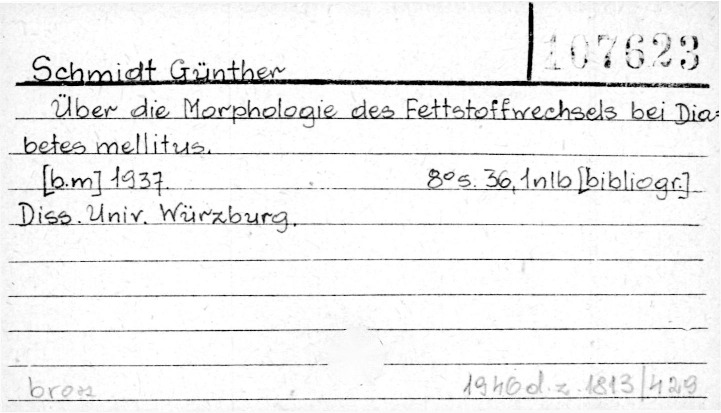 107623
Schmidt Günther
Über die Morphologie des Fettstoffwechsels bei Dia-
betes mellitus.
[b.m] 1937. 8° s. 36, 1 nlb [bibliogr.]
Diss. Univ. Würzburg.
brosz 1940 d. z. 1813/429